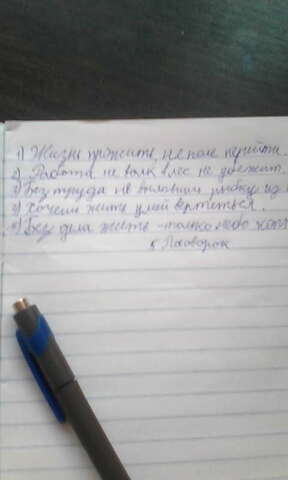 1) Жизнь прожить, не поле перейти.
2) Работа не волк в лес не убежит.
3) Без труда не выловишь рыбку из
4) Хочешь жить умей вертеться.
5) Без дела жить - только небо копт
5 Поговорок